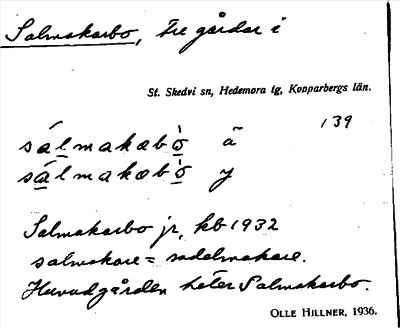 Salmakarbo, tre gårdar i
St. Skedvi sn, Hedemora tg, Kopparbergs län.
139
sálmakabò̱ ä
sálmakabò̱ y
Salmakarbo jr, kb 1932
salmakare = sadelmakare.
Huvudgården heter Salmakarbo.
OLLE HILLNER, 1936.